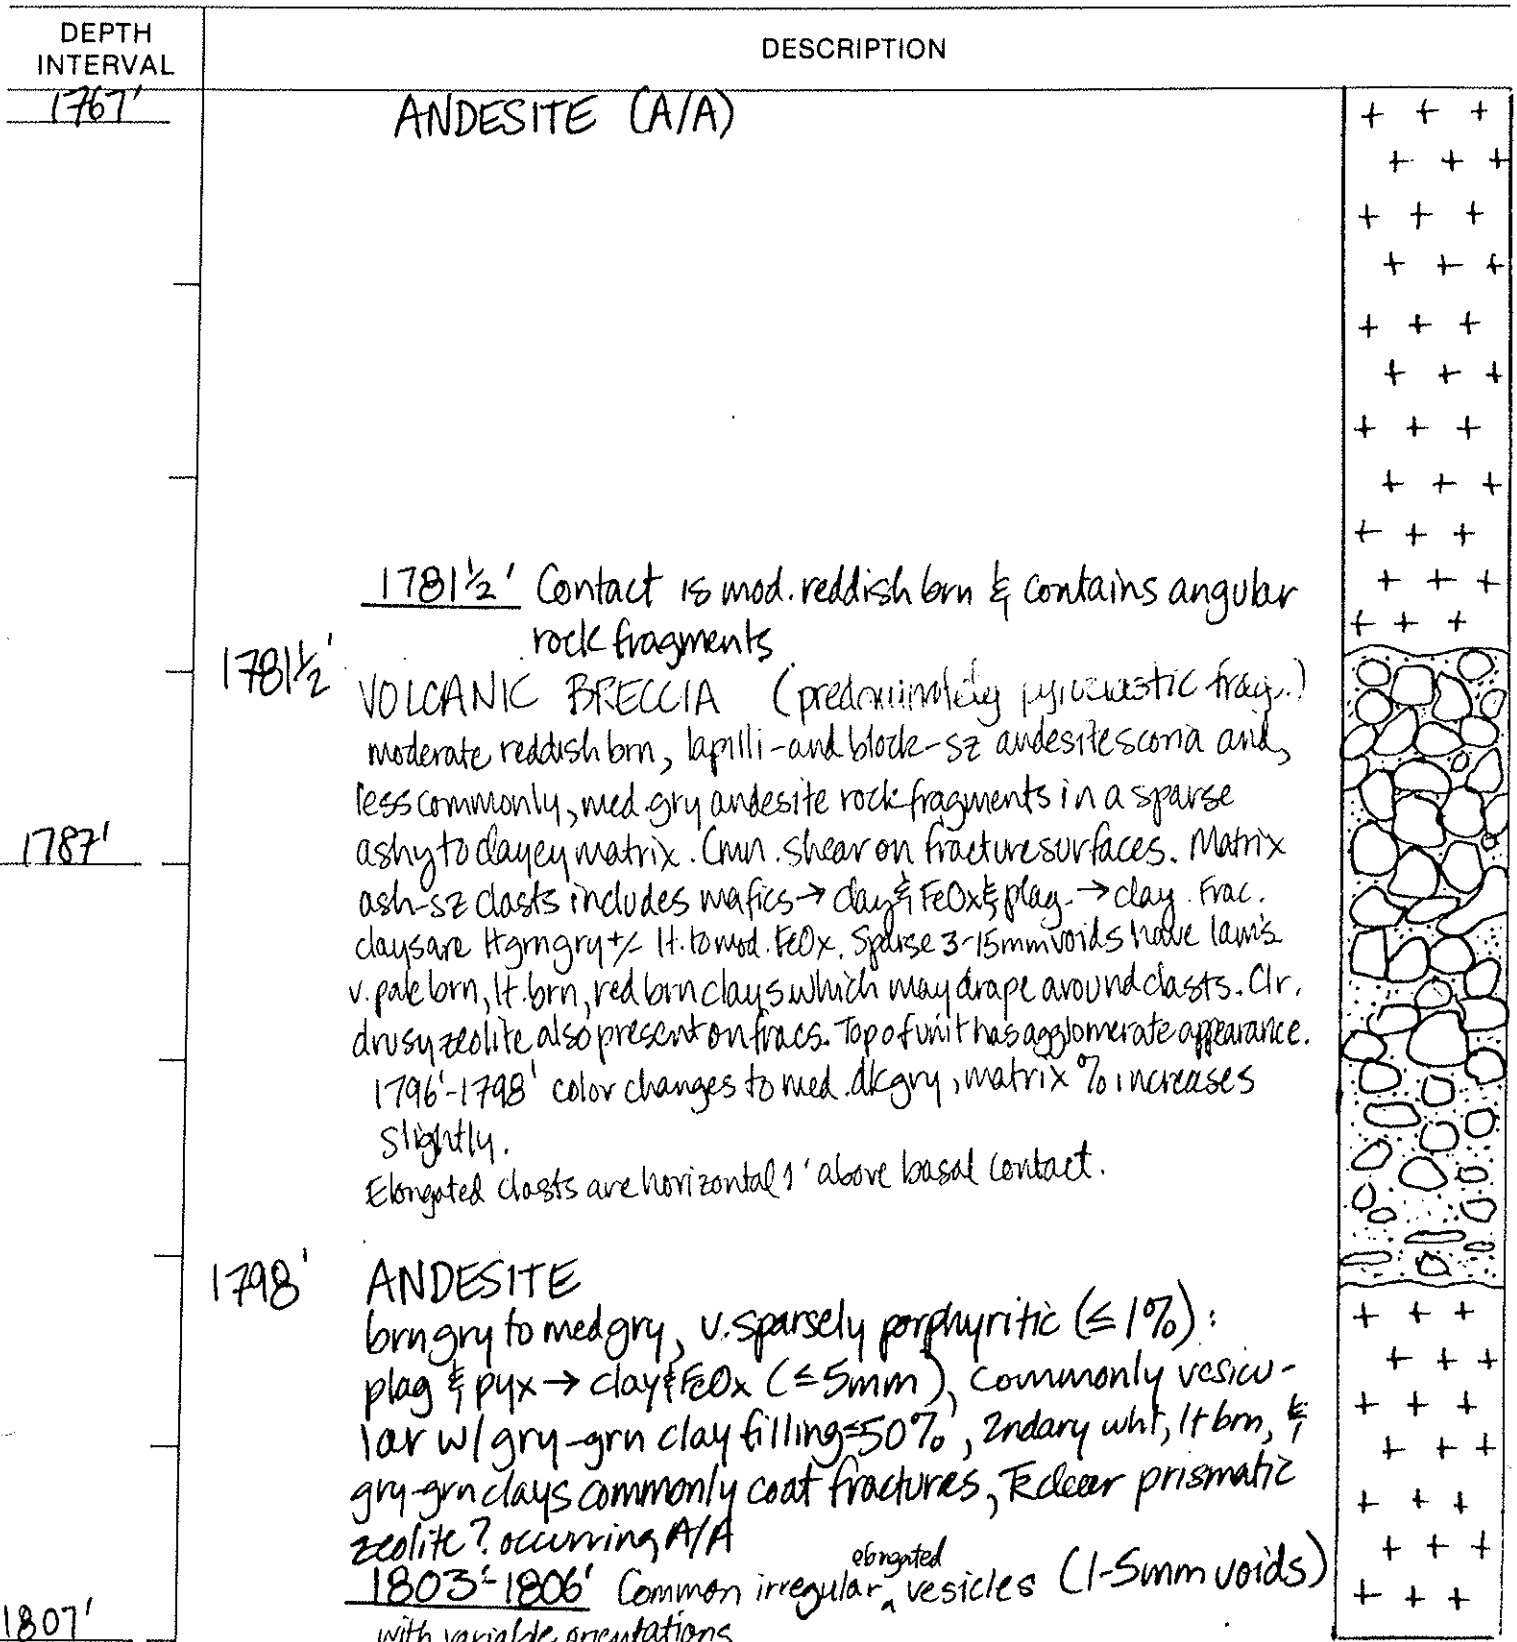 DEPTH INTERVAL
DESCRIPTION
1767'
ANDESITE (A/A)
1781½' Contact is mod. reddish brn & contains angular
rock fragments
1781½'
VOLCANIC BRECCIA (predominately pyroclastic frag.)
moderate reddish brn, lapilli-and block-sz andesite scoria and,
less commonly, med. gry andesite rock fragments in a sparse
1787'
ashy to clayey matrix. Cmn. shear on fracture surfaces. Matrix
ash-sz clasts includes mafics → clay & FeOx & plag. → clay. Frac.
clays are lt grn gry +/- lt. to mod. FeOx. Sparse 3-15mm voids have lams
v. pale brn, lt. brn, red brn clays which may drape around clasts. Clr.
drusy zeolite also present on fracs. Top of unit has agglomerate appearance.
1796'-1798' color changes to med. dk gry, matrix % increases
slightly.
Elongated clasts are horizontal 1' above basal contact.
1798'
ANDESITE
brn gry to med gry, v. sparsely porphyritic (≤ 1%):
plag & pyx → clay & FeOx (≤ 5mm), commonly vesicu-
lar w/ gry-grn clay filling ≤50%, 2ndary wht, lt brn, &
gry-grn clays commonly coat fractures, Tr clear prismatic
zeolite? occurring A/A
1803'-1806' Common irregular ^ elongated vesicles (1-5mm voids)
1807'
with variable orientations